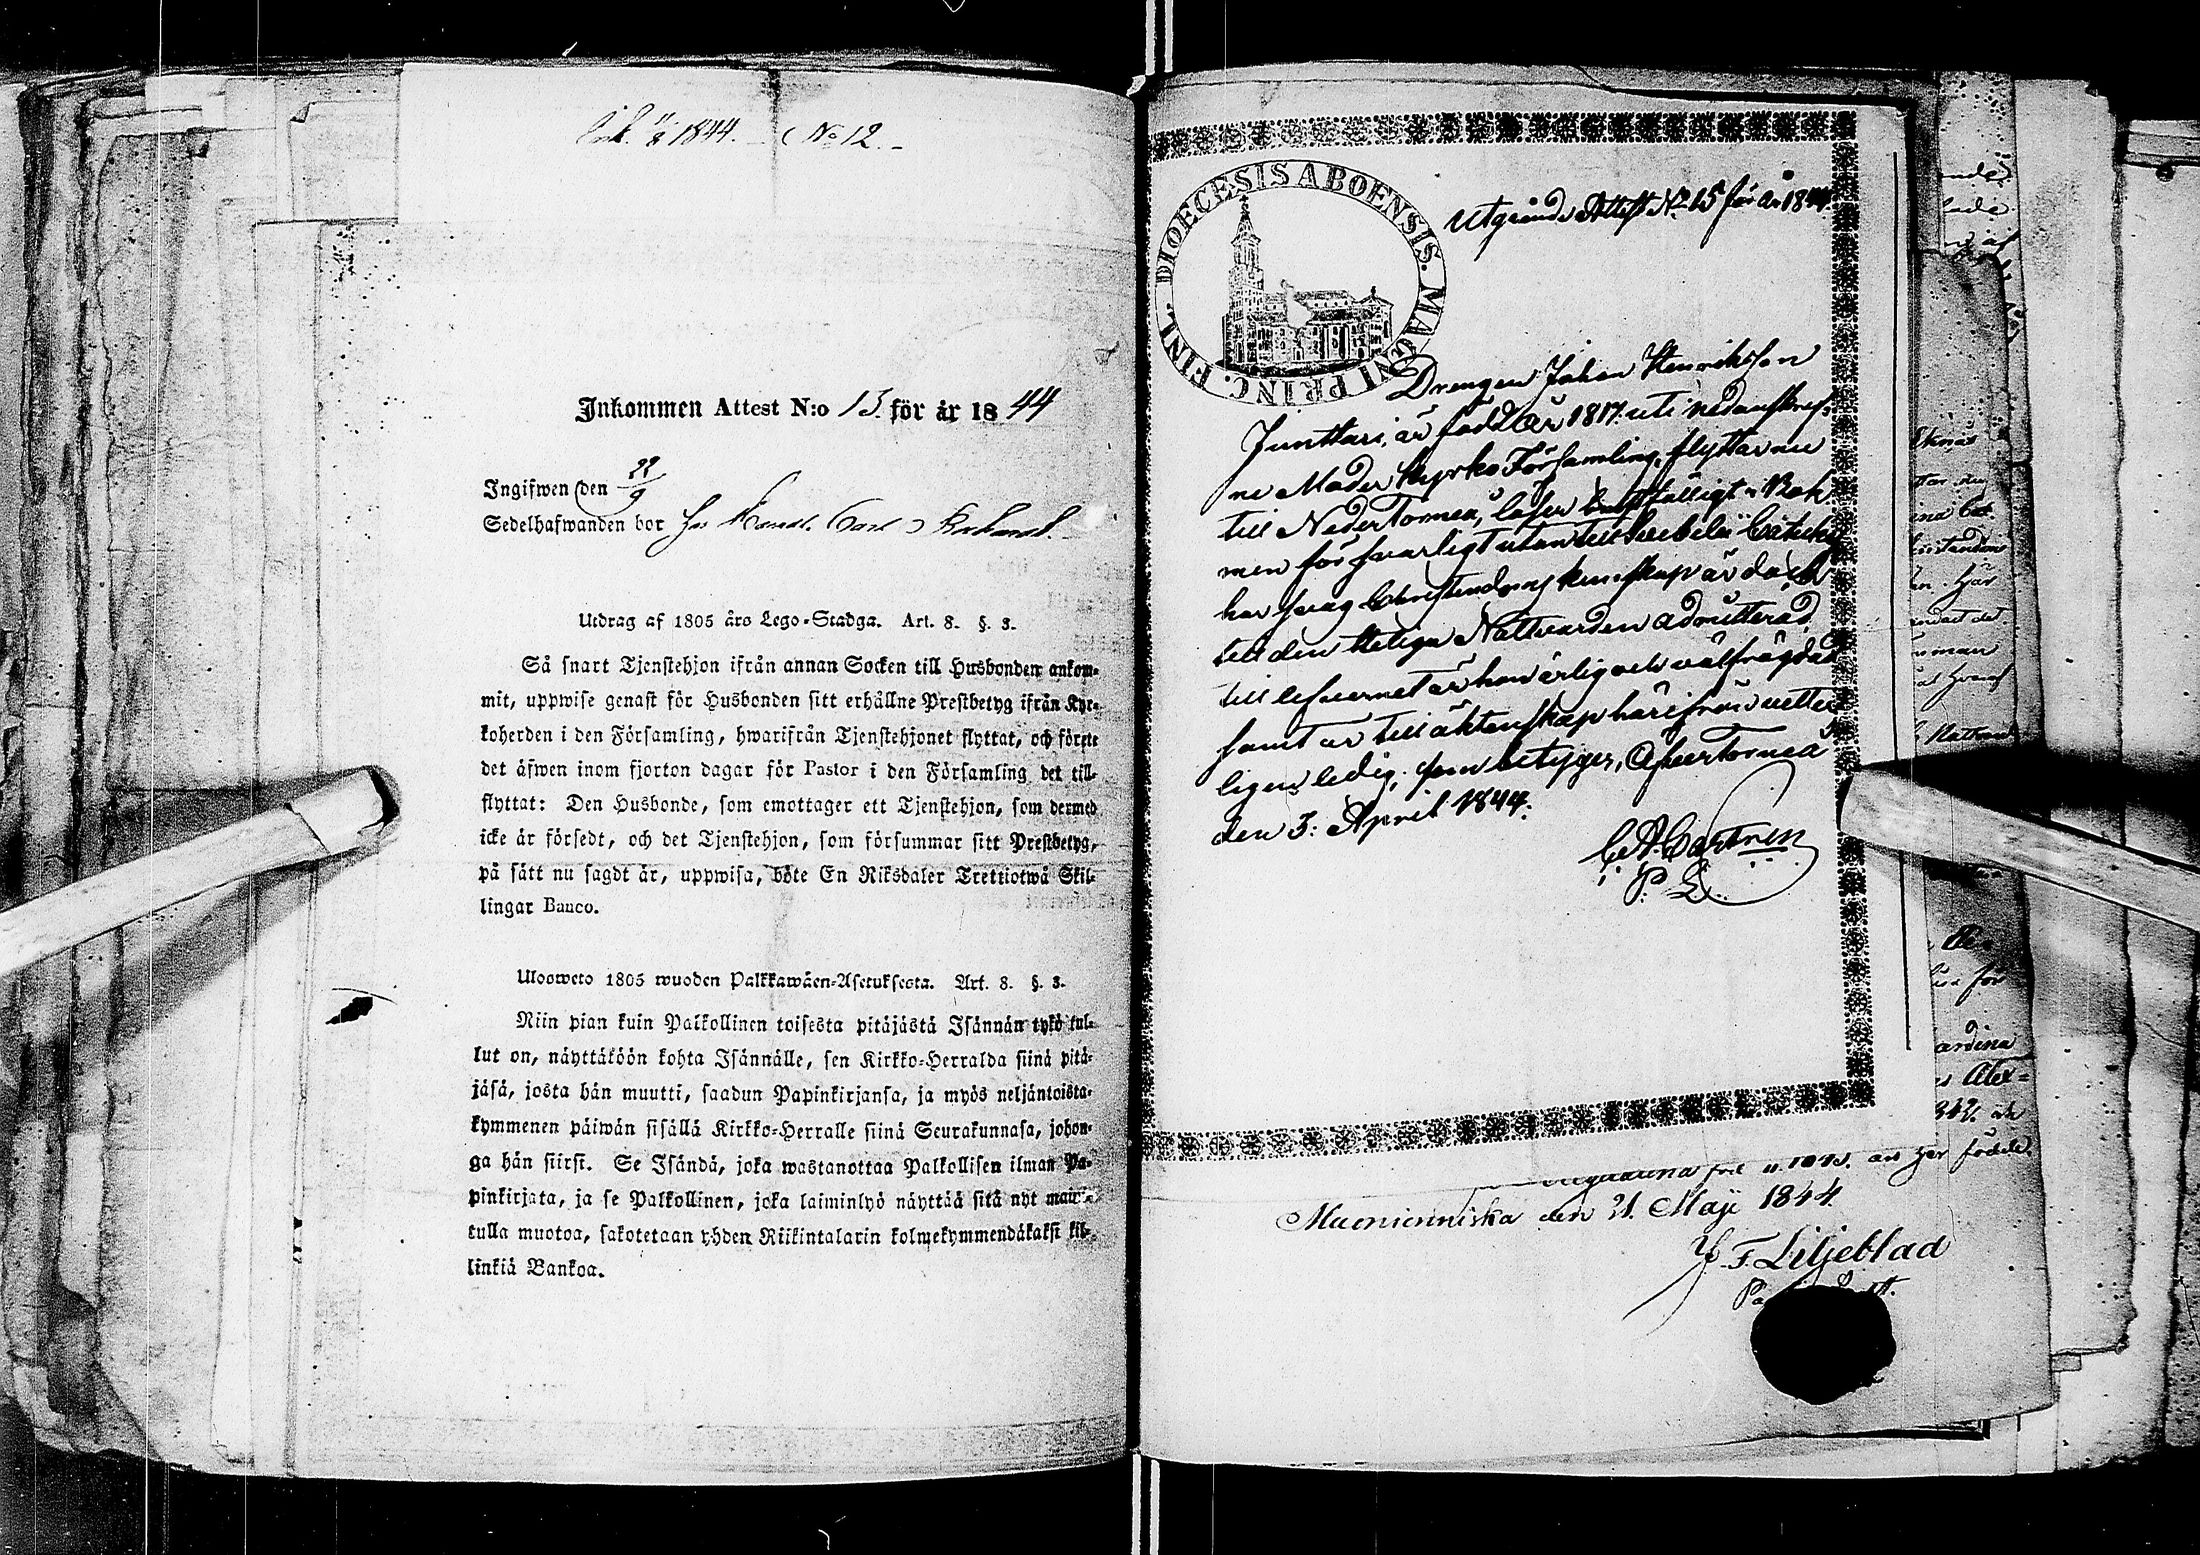 1844. No 12.
Inkommen Attest N:o 13. för år 1844
Ingifwen den 22/9
Sedelhafwanden bor hos
Utdrag af 1805 års Lego-Stadga. Art. 8. §. 3.
Så snart Tjenstehjon ifrån annan Socken till Husbonden ankom-
mit, uppwise genast för Husbonden sitt erhållne Prestbetyg ifrån Kyr-
koherden i den Församling, hwarifrån Tjenstehjonet flyttat, och förete
det äfwen inom fjorton dagar för Pastor i den Församling det till-
flyttat: Den Husbonde, som emottager ett Tjenstehjon, som dermed
icke är försedt, och det Tjenstehjon, som försummar sitt Prestbetyg,
på sätt nu sagdt är, uppwisa, böte En Riksdaler Trettiotwå Skil-
lingar Banco.
Ulosweto 1805 wuoden Palkkawäen-Asetuksesta. Art. 8. §. 3.
Niin pian kuin Palkollinen toisesta pitäjästä Isännän tykö tul-
lut on, näyttäköön kohta Isännälle, sen Kirkko-Herralda siinä pitä-
jäsä, josta hän muutti, saadun Papinkirjansa, ja myös neljäntoista-
kymmenen päiwän sisällä Kirkko-Herralle siinä Seurakunnasa, johon-
ga hän siirsi. Se Isändä, joka wastanottaa Palkollisen ilman Pa-
pinkirjata, ja se Palkollinen, joka laiminlyö näyttää sitä nyt mainitulla
tulla muotoa, sakotetaan yhden Riikintalarin kolmekymmendäkaksi kil-
linkiä Bankoa.
DIOECESIS ABOENSIS. MAGNI PRINC. FINL.
Utgående Attest No 15 för år 1844.
Drengen Johan Henriksson
Junttari, är född år 1817. uti nedanskref-
ne Moder Kyrko Församling, flyttar nu
till Neder Torneå, läser i Bok
men försvarligt utan till Catech
har svag Christendoms kunskap är dock
till den Heliga Nattvarden admitterad,
till lefvernet är han ärlig och välfrägdad
samt är till äktenskap härifrån vetter-
ligen ledig; som betygar, Öfvertorneå
den 3: April 1844.
C. A. Castrén
P. L.
Muonionniska den 21. Maji 1844.
J. F. Liljeblad